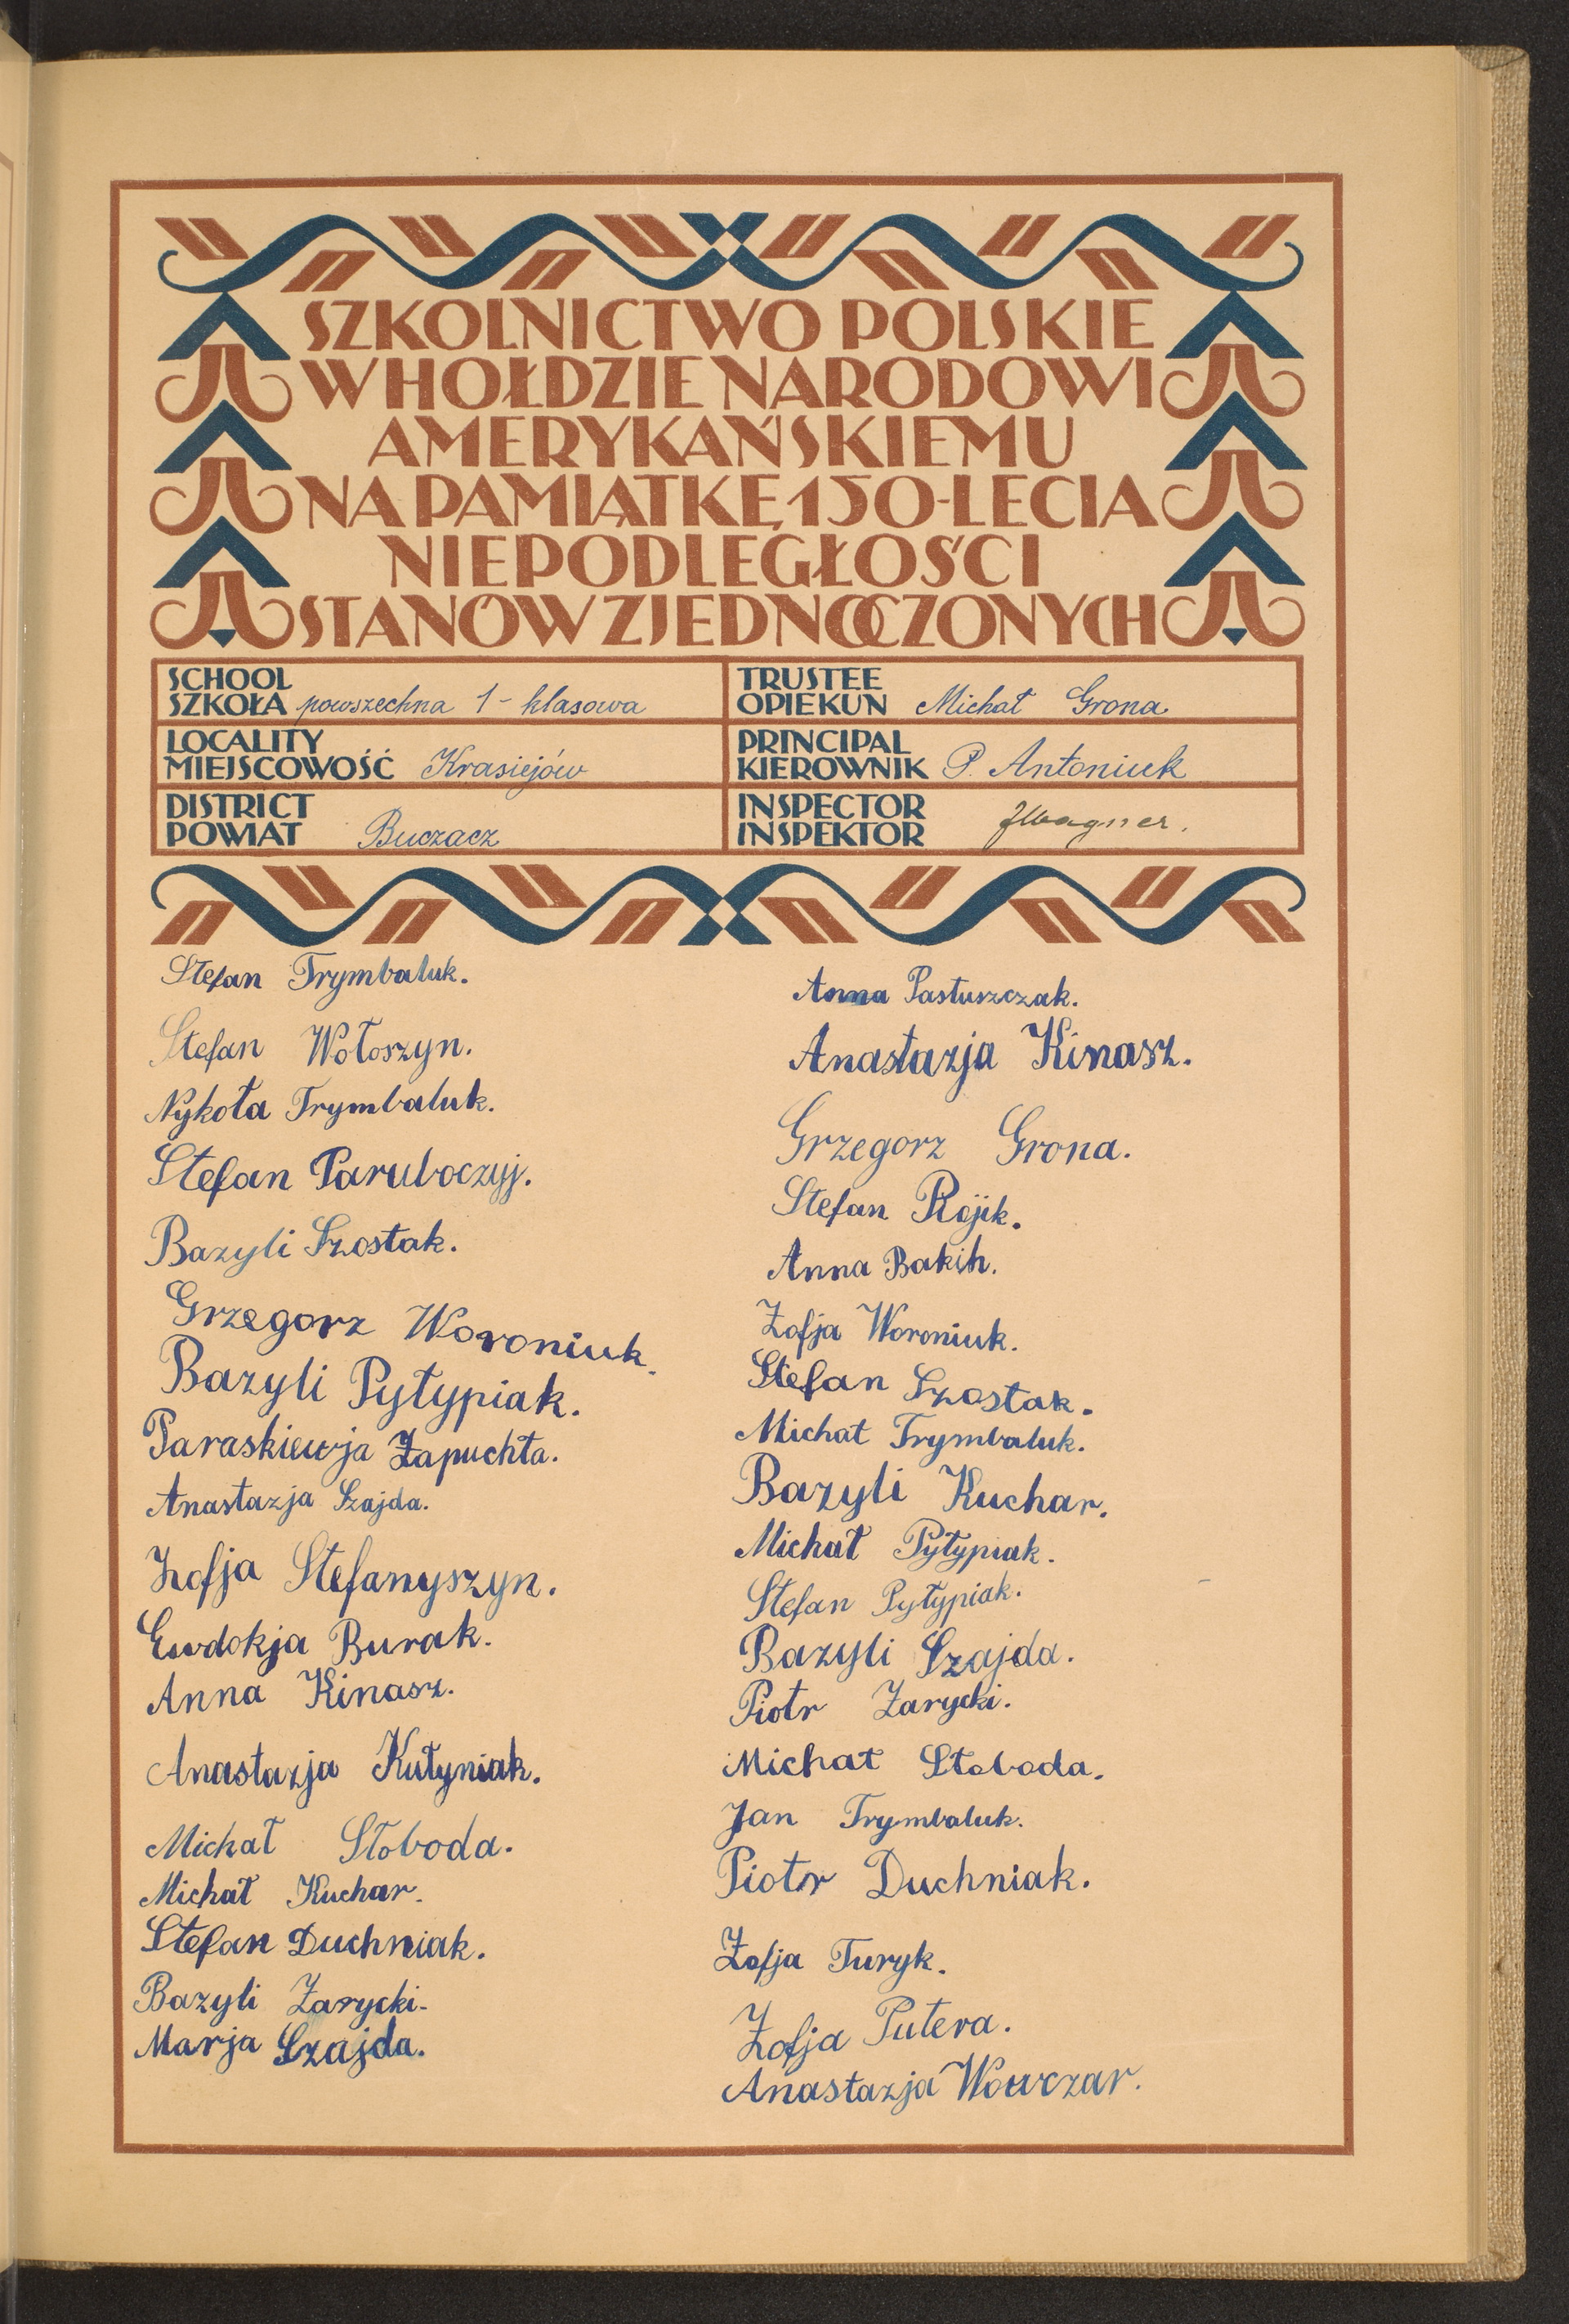 SZKOLNICTWO POLSKIE
W HOŁDZIE NARODOWI
AMERYKAŃSKIEMU
NA PAMIĄTKĘ 150-LECIA
NIEPODLEGŁOŚCI
STANÓW ZJEDNOCZONYCH
SCHOOL
SZKOŁA powszechna 1-klasowa
LOCALITY
MIEJSCOWOŚĆ Krasiejów
DISTRICT
POWIAT Buczacz
TRUSTEE
OPIEKUN Michał Grona
PRINCIPAL
KIEROWNIK P. Antoniuk
INSPECTOR
INSPEKTOR JWagner.
Stefan Trymbaluk.
Stefan Wołoszyn.
Nykoła Trymbaluk.
Stefan Paruboczyj.
Bazyli Szostak.
Grzegorz Woroniuk.
Bazyli Pyłypiak.
Paraskiewja Zapuchła.
Anastazja Szajda.
Zofja Stefanyszyn.
Ewdokja Burak.
Anna Kinasz.
Anastazja Kułyniak.
Michał Słoboda.
Michał Kuchar.
Stefan Duchniak.
Bazyli Zarycki.
Marja Szajda.
Anna Pastuszczak.
Anastazja Kinasz.
Grzegorz Grona.
Stefan Rojik.
Anna Bakih.
Zofja Woroniuk.
Stefan Szostak.
Michał Trymbaluk.
Bazyli Kuchar.
Michał Pyłypiak.
Stefan Pyłypiak.
Bazyli Szajda.
Piotr Zarycki.
Michał Słoboda.
Jan Trymbaluk.
Piotr Duchniak.
Zofja Turyk.
Zofja Putera.
Anastazja Wowczar.